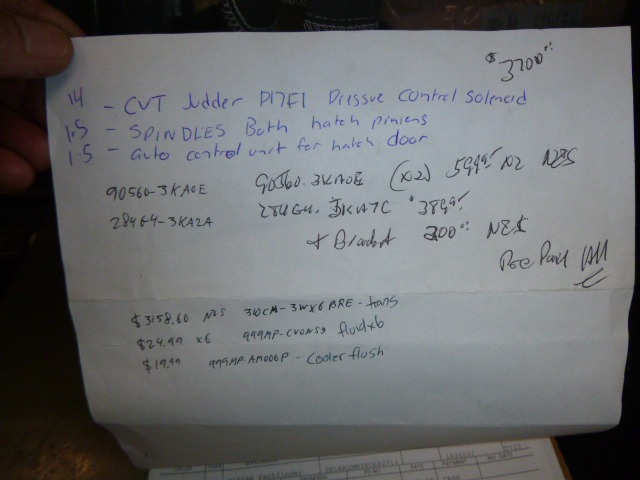 $3700.00
14 - CVT Judder P17F1 Pressue control solenoid
1.5 - SPINDLES Both hatch pinions
1.5 - auto control unit for hatch door
90560-3KA0E 90560.3KA0E (x2) 599.95 x2 NIS
284G4-3KA2A 284G4. 3KA7C $389.95
+ Bracket 200.00 NIS
$3158.60 NIS 310CM-3WX6 BRE - trans
$24.99 x6 999MP-CV0NS3 fluid x6
$19.99 999MP-AM006P - Cooler flush